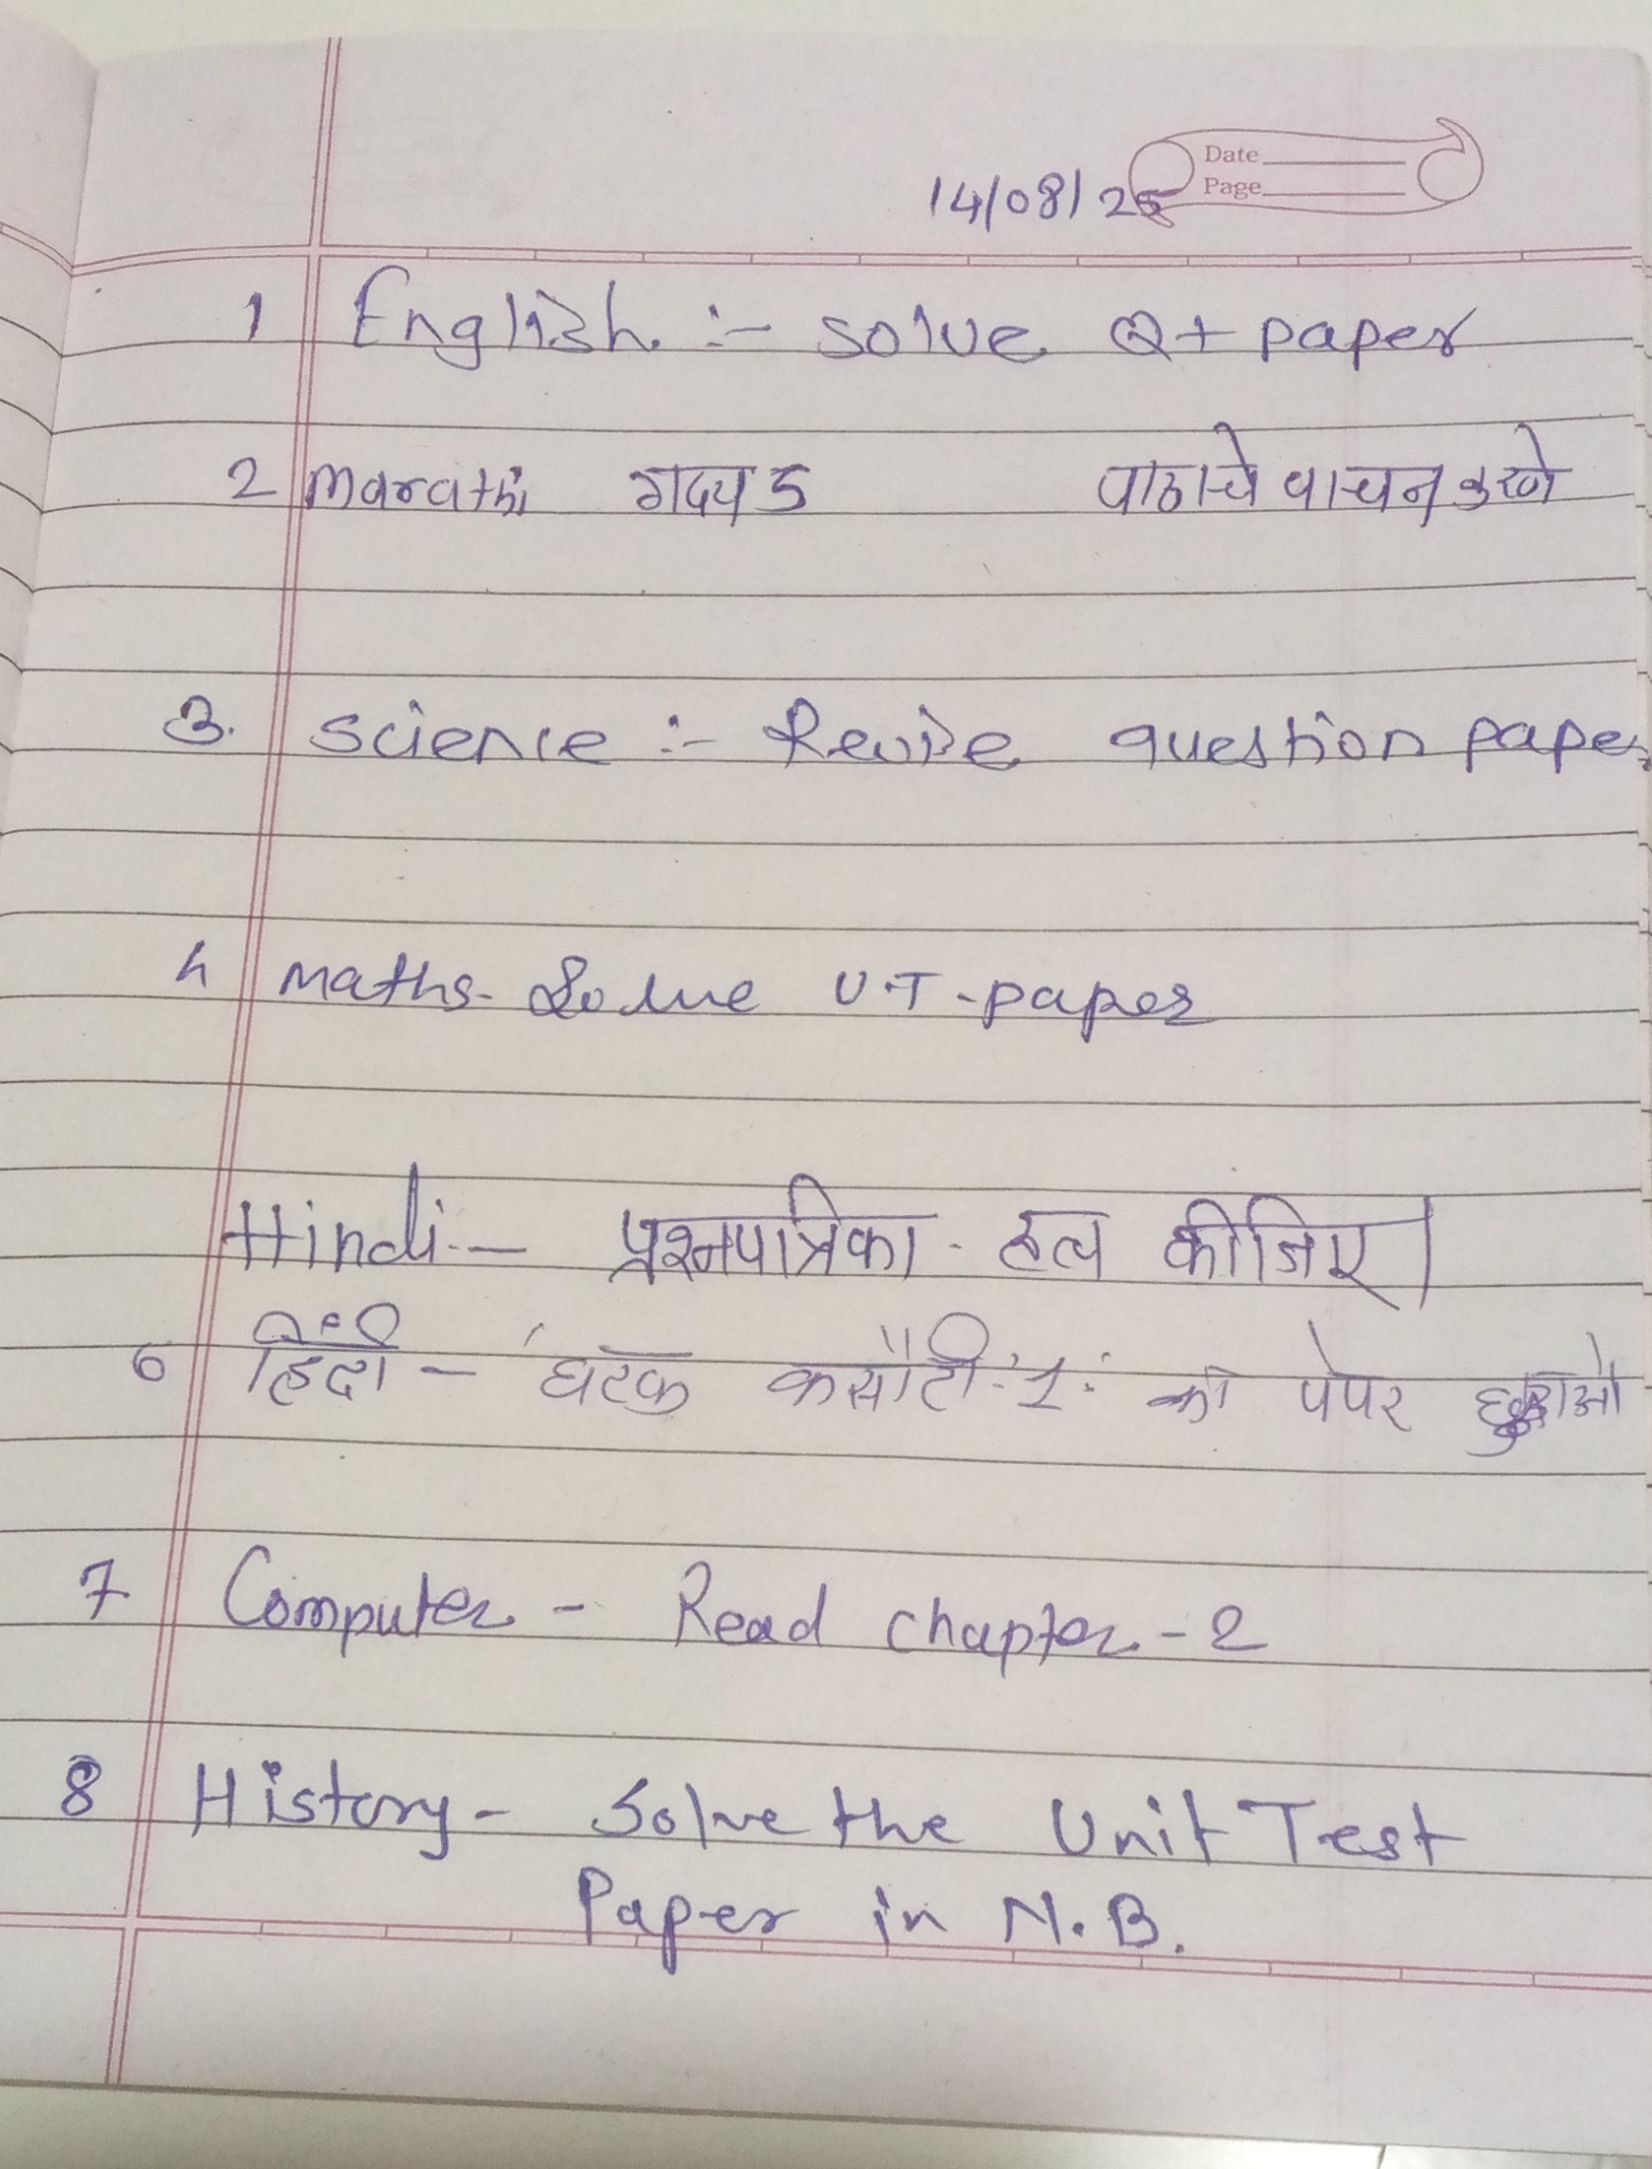 Date
Page
14/08/25
1 English :- solve Q+ paper
2 Marathi गदय 5 पाठाचे वाचन करणे
3. Science :- Revise question paper
4 Maths - Solve U.T - paper
Hindi - प्रश्नपात्रिका - हल कीजिए।
6 हिंदी - 'घटक कसौटी '1' का पेपर
7 Computer - Read chapter - 2
8 History - Solve the Unit Test
Paper in N.B.